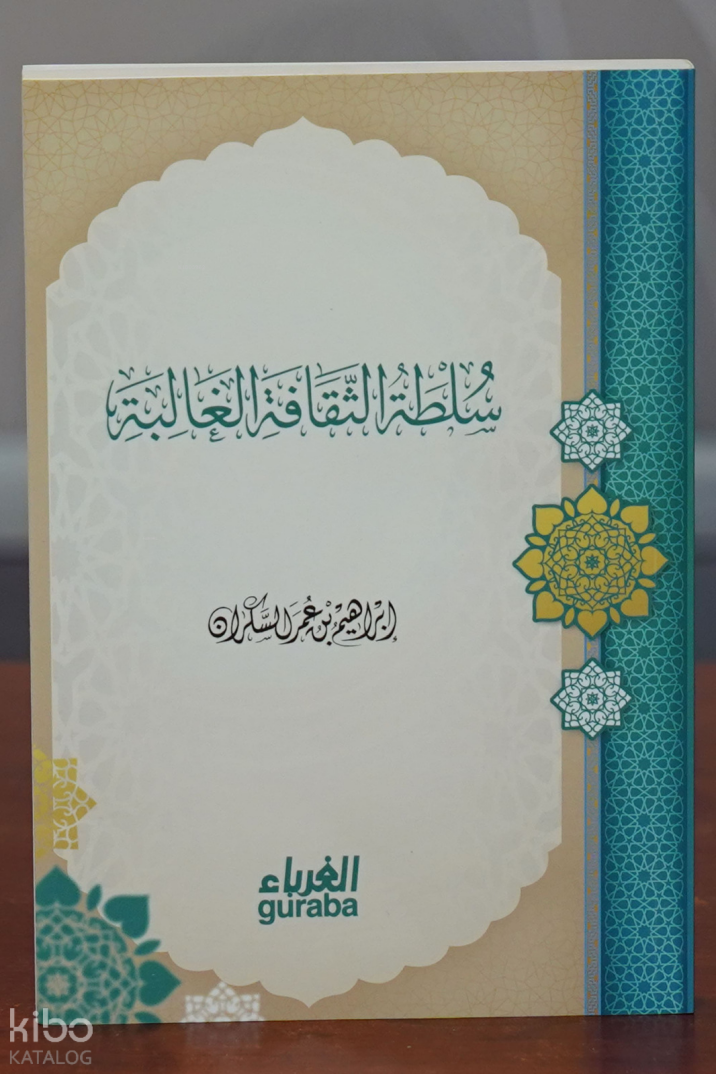 سُلْطَةُ الثَّقَافَةِ الغَالِبَةِ
إبْرَاهِيْم بْن عُمَر السَّكْرَان
الغرباء
guraba
kibo
KATALOG